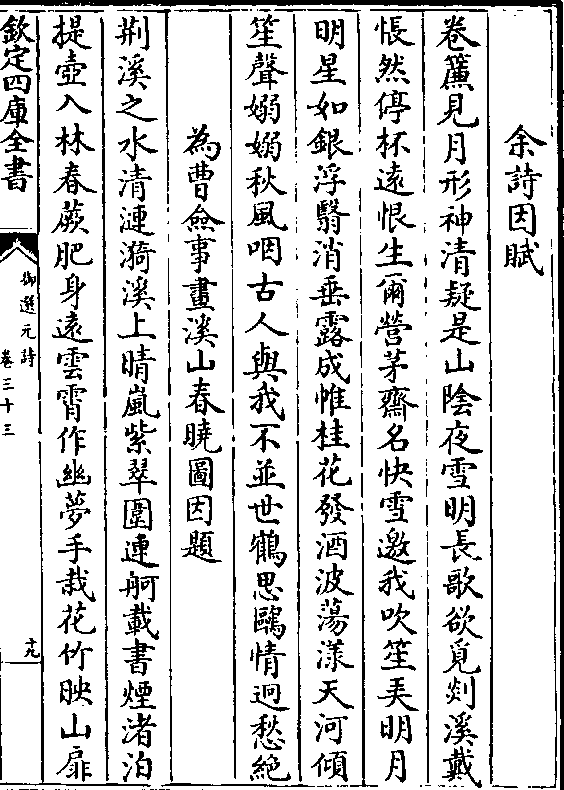 余詩因賦
卷簾見月形神清疑是山陰夜雪明長歌欲覓剡溪戴
悵然停杯遠恨生爾營茅齋名快雪邀我吹笙弄明月
明星如銀浮翳消垂露成帷桂花發酒波蕩漾天河傾
笙聲嫋嫋秋風咽古人與我不並世鶴思鷗情迥愁絶
為曹僉事畫溪山春曉圖因題
荆溪之水清漣漪溪上晴嵐紫翠圍連舸載書煙渚泊
提壺入林春蕨肥身遠雲霄作幽夢手栽花竹映山扉
欽定四庫全書
御選元詩
卷三十三
十九